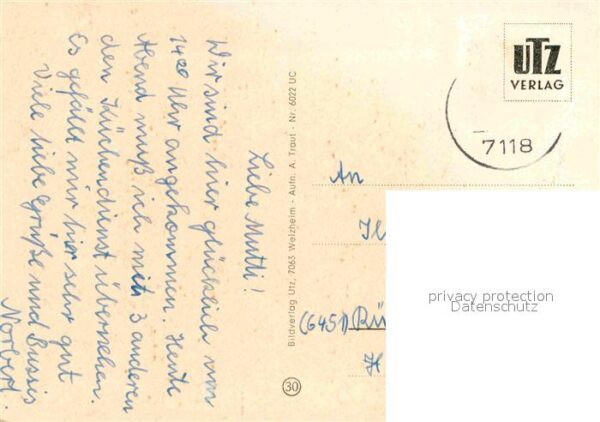 Liebe Mutti!
Wir sind hier glücklich um
14⁰⁰ Uhr angekommen. Heute
Abend muß ich mit 3 anderen
den Küchendienst übernehmen.
Es gefällt mir hier sehr gut
Viele liebe Grüße und Bussis
Norbert.
Bildverlag Utz, 7063 Welzheim - Aufn. A. Traut - Nr. 6022 UC
30
UTZ
VERLAG
7118
An
(6451)
H
privacy protection
Datenschutz